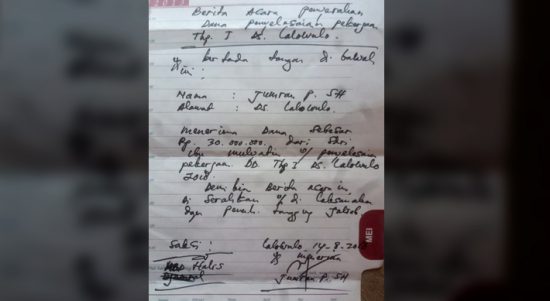 2013
Berita Acara penyerahan
Dana penyelesaian pekerjaan
Thp. I Ds. Lalowulo.
Yg bertanda tangan di bawah
ini :
Nama : Jumran P. SH
Alamat : Ds Lalowulo.
Menerima Dana sebesar
Rp. 30.000.000. dari Sdri
Ibu u/ penyelesaian
pekerjaan DD Thp I Ds. Lalowulo
2018.
Demikian Berita acara ini
di serahkan u/ di laksanakan
dgn penuh tanggung jawab.
Saksi :
Lalowulo 14-8-20
Yg menerima
Halis
Jumran P. SH
MEI